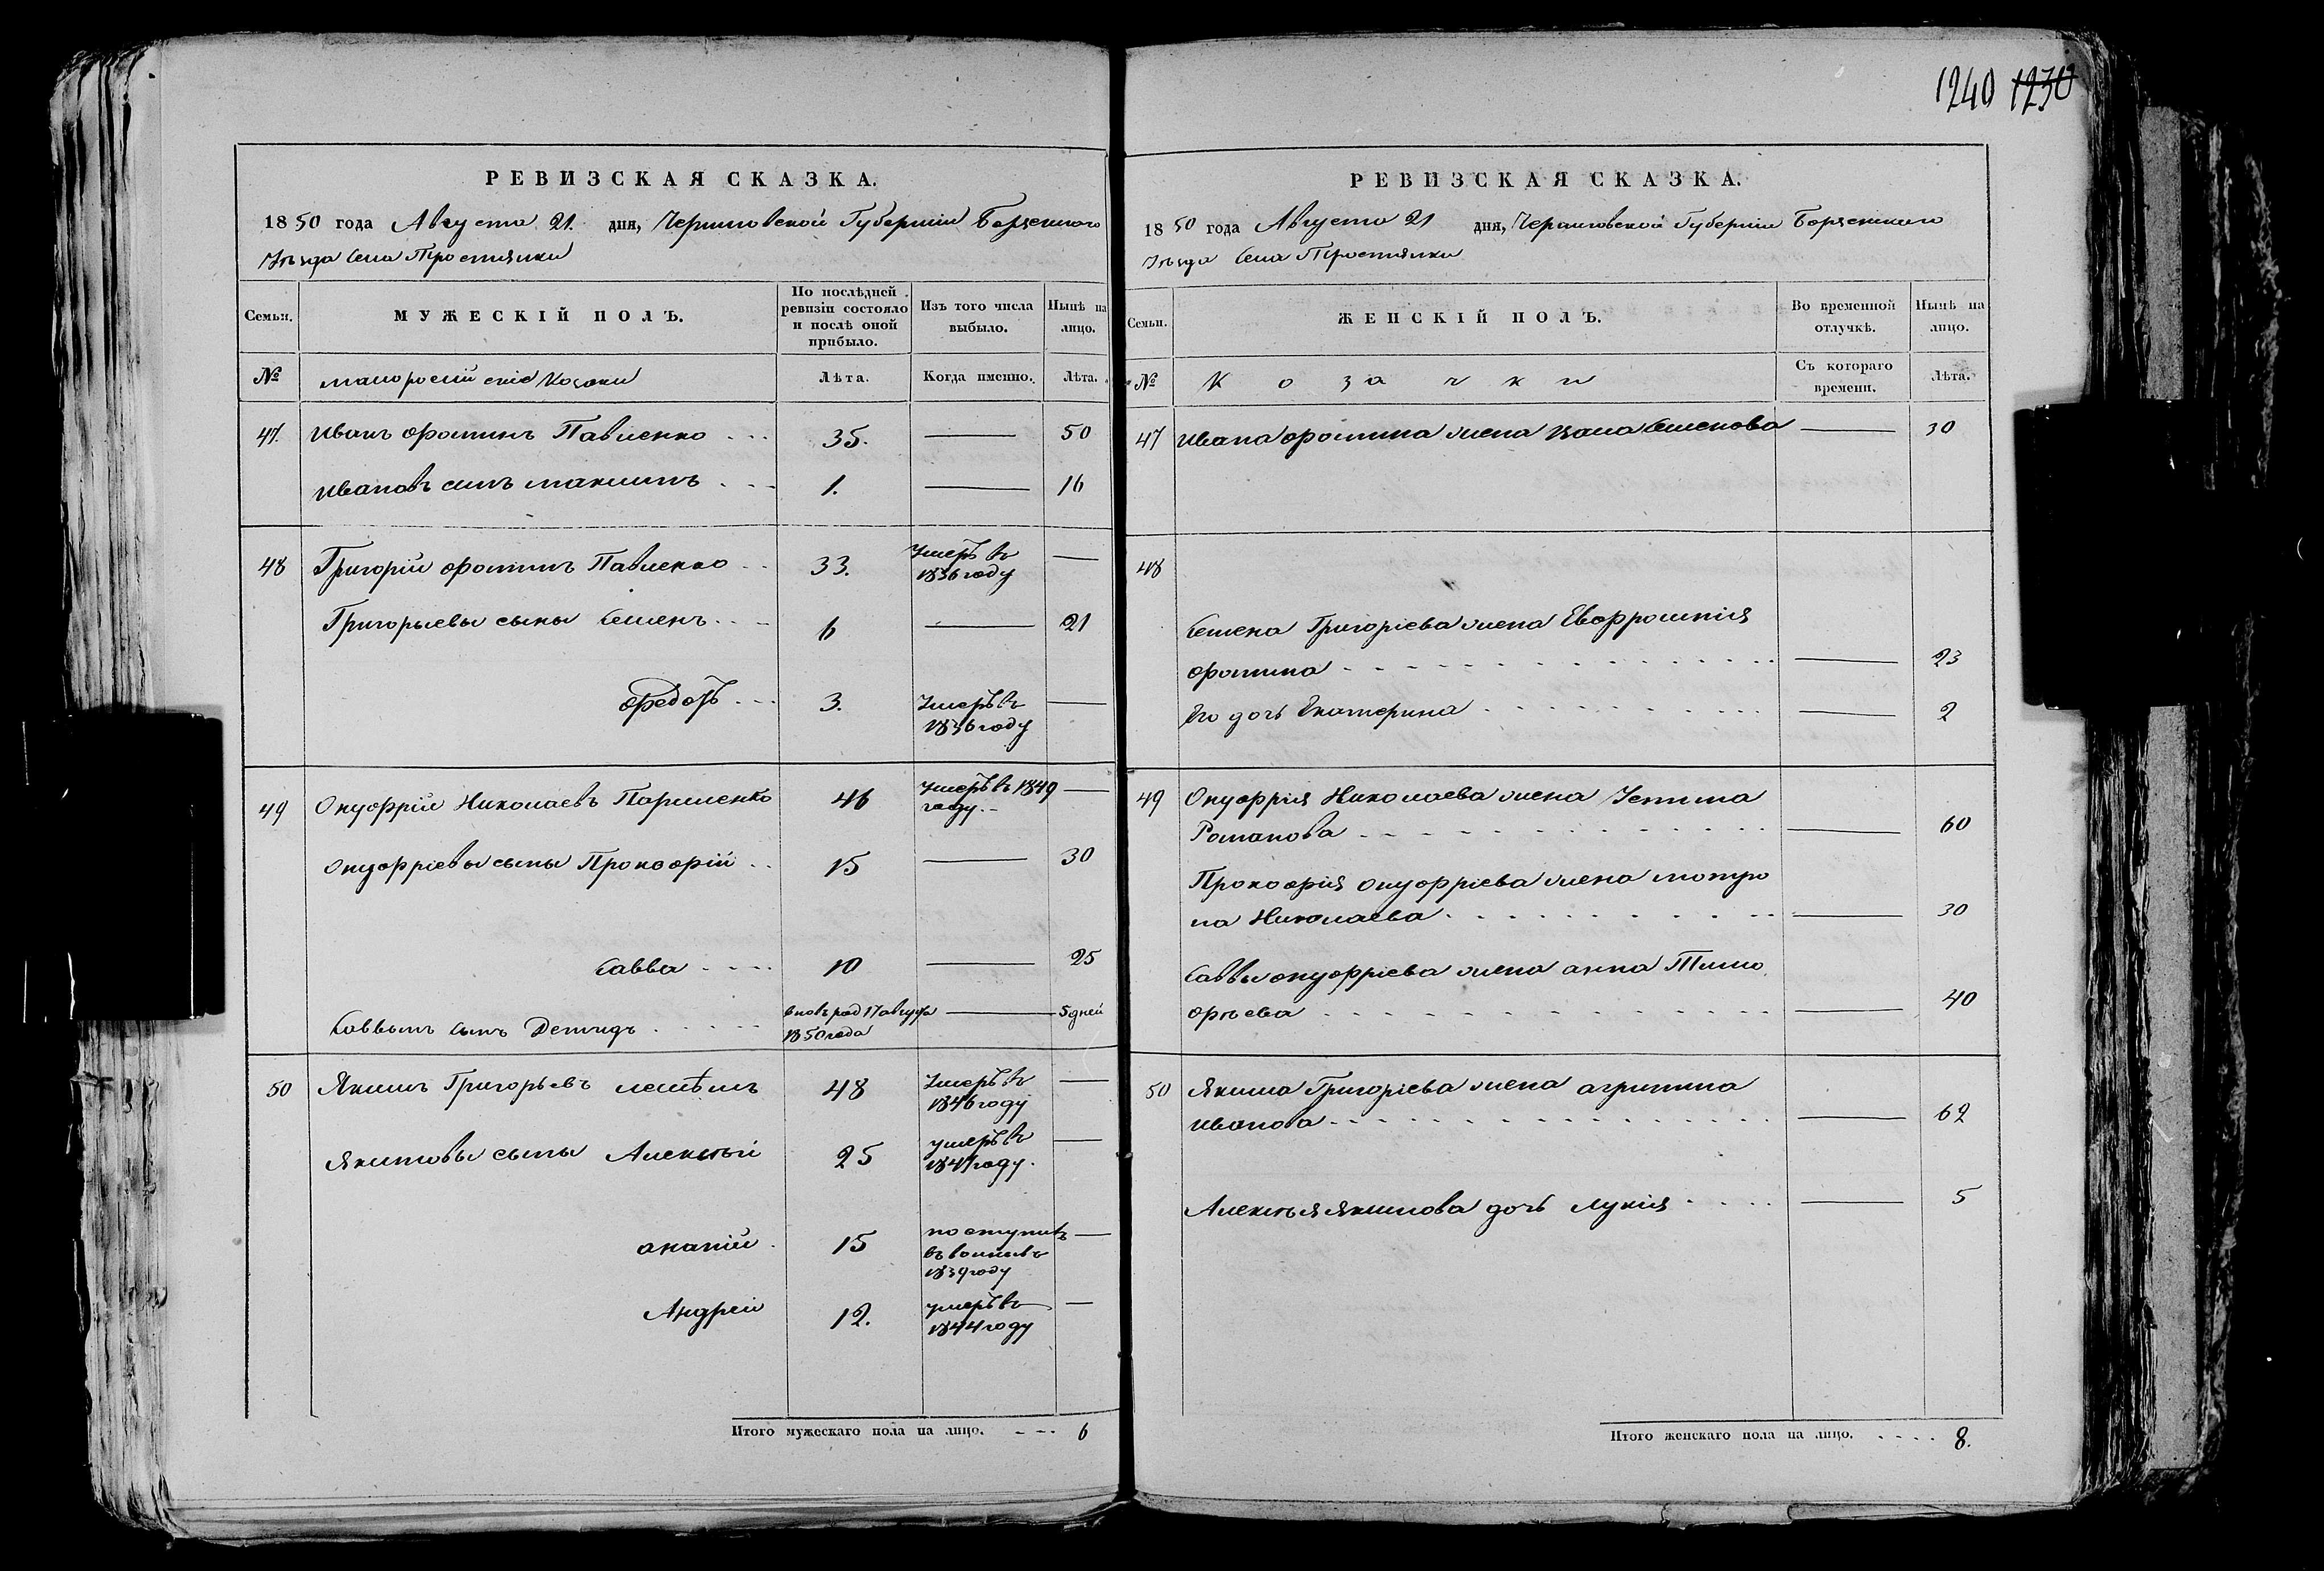 1240 1230
РЕВИЗСКАЯ СКАЗКА.
1850 года Августа 21. дня, Черниговской Губерніи Борзенского
Уѣзда Села Простянки
Семьи.
МУЖЕСКІЙ ПОЛЪ.
По послѣдней ревизіи состояло и послѣ оной прибыло.
Изъ того числа выбыло.
Нынѣ на лицо.
№
малоросійскіе Козаки
Лѣта.
Когда именно.
Лѣта.
47. Иванъ Фоминъ Павленко 35. 50
Ивановъ синъ Максимъ 1. 16
48 Григорій Фоминъ Павленко 33. Умеръ въ 1836 году
Григорьевы сыны Семенъ 6 21
Федоръ 3. Умеръ въ 1836 году
49 Онуфрій Николаевъ Пармменко 46 Умеръ въ 1849 году
Онуфріевы сыны Прокофій 15 30
Савва 10 25
Саввынъ сынъ Демидъ вновь род 17 августа 1850 года 5 дней
50 Якимъ Григорьевъ 48 Умеръ въ 1846 году
Якимовы сыны Алексѣй 25 умеръ въ году
Ананій 15 поступилъ въ 1839 году
Андрей 12. умеръ въ 1844 году
Итого мужескаго пола на лицо. 6
РЕВИЗСКАЯ СКАЗКА.
1850 года Августа 21 дня, Черниговской Губерніи Борзенского
Уѣзда Села Простянки
Семьи.
ЖЕНСКІЙ ПОЛЪ.
Во временной отлучкѣ.
Нынѣ на лицо.
№
Козачки
Съ котораго времени.
Лѣта.
47 Ивана Фомина жена Семенова 30
48
Семена Григоріева жена Евфросинія
Фомина 23
Его дочь Екатерина 2
49 Онуфрія Николаева жена Устина
Романова 60
Прокофія Онуфріева жена Мотро
на Николаева 30
Саввы Онуфріева жена Анна Тимо
фѣева 40
50 Якима Григоріева жена Агрипина
Иванова 62
Алексѣя Якимова дочь Лукія 5
Итого женскаго пола на лицо. 8.